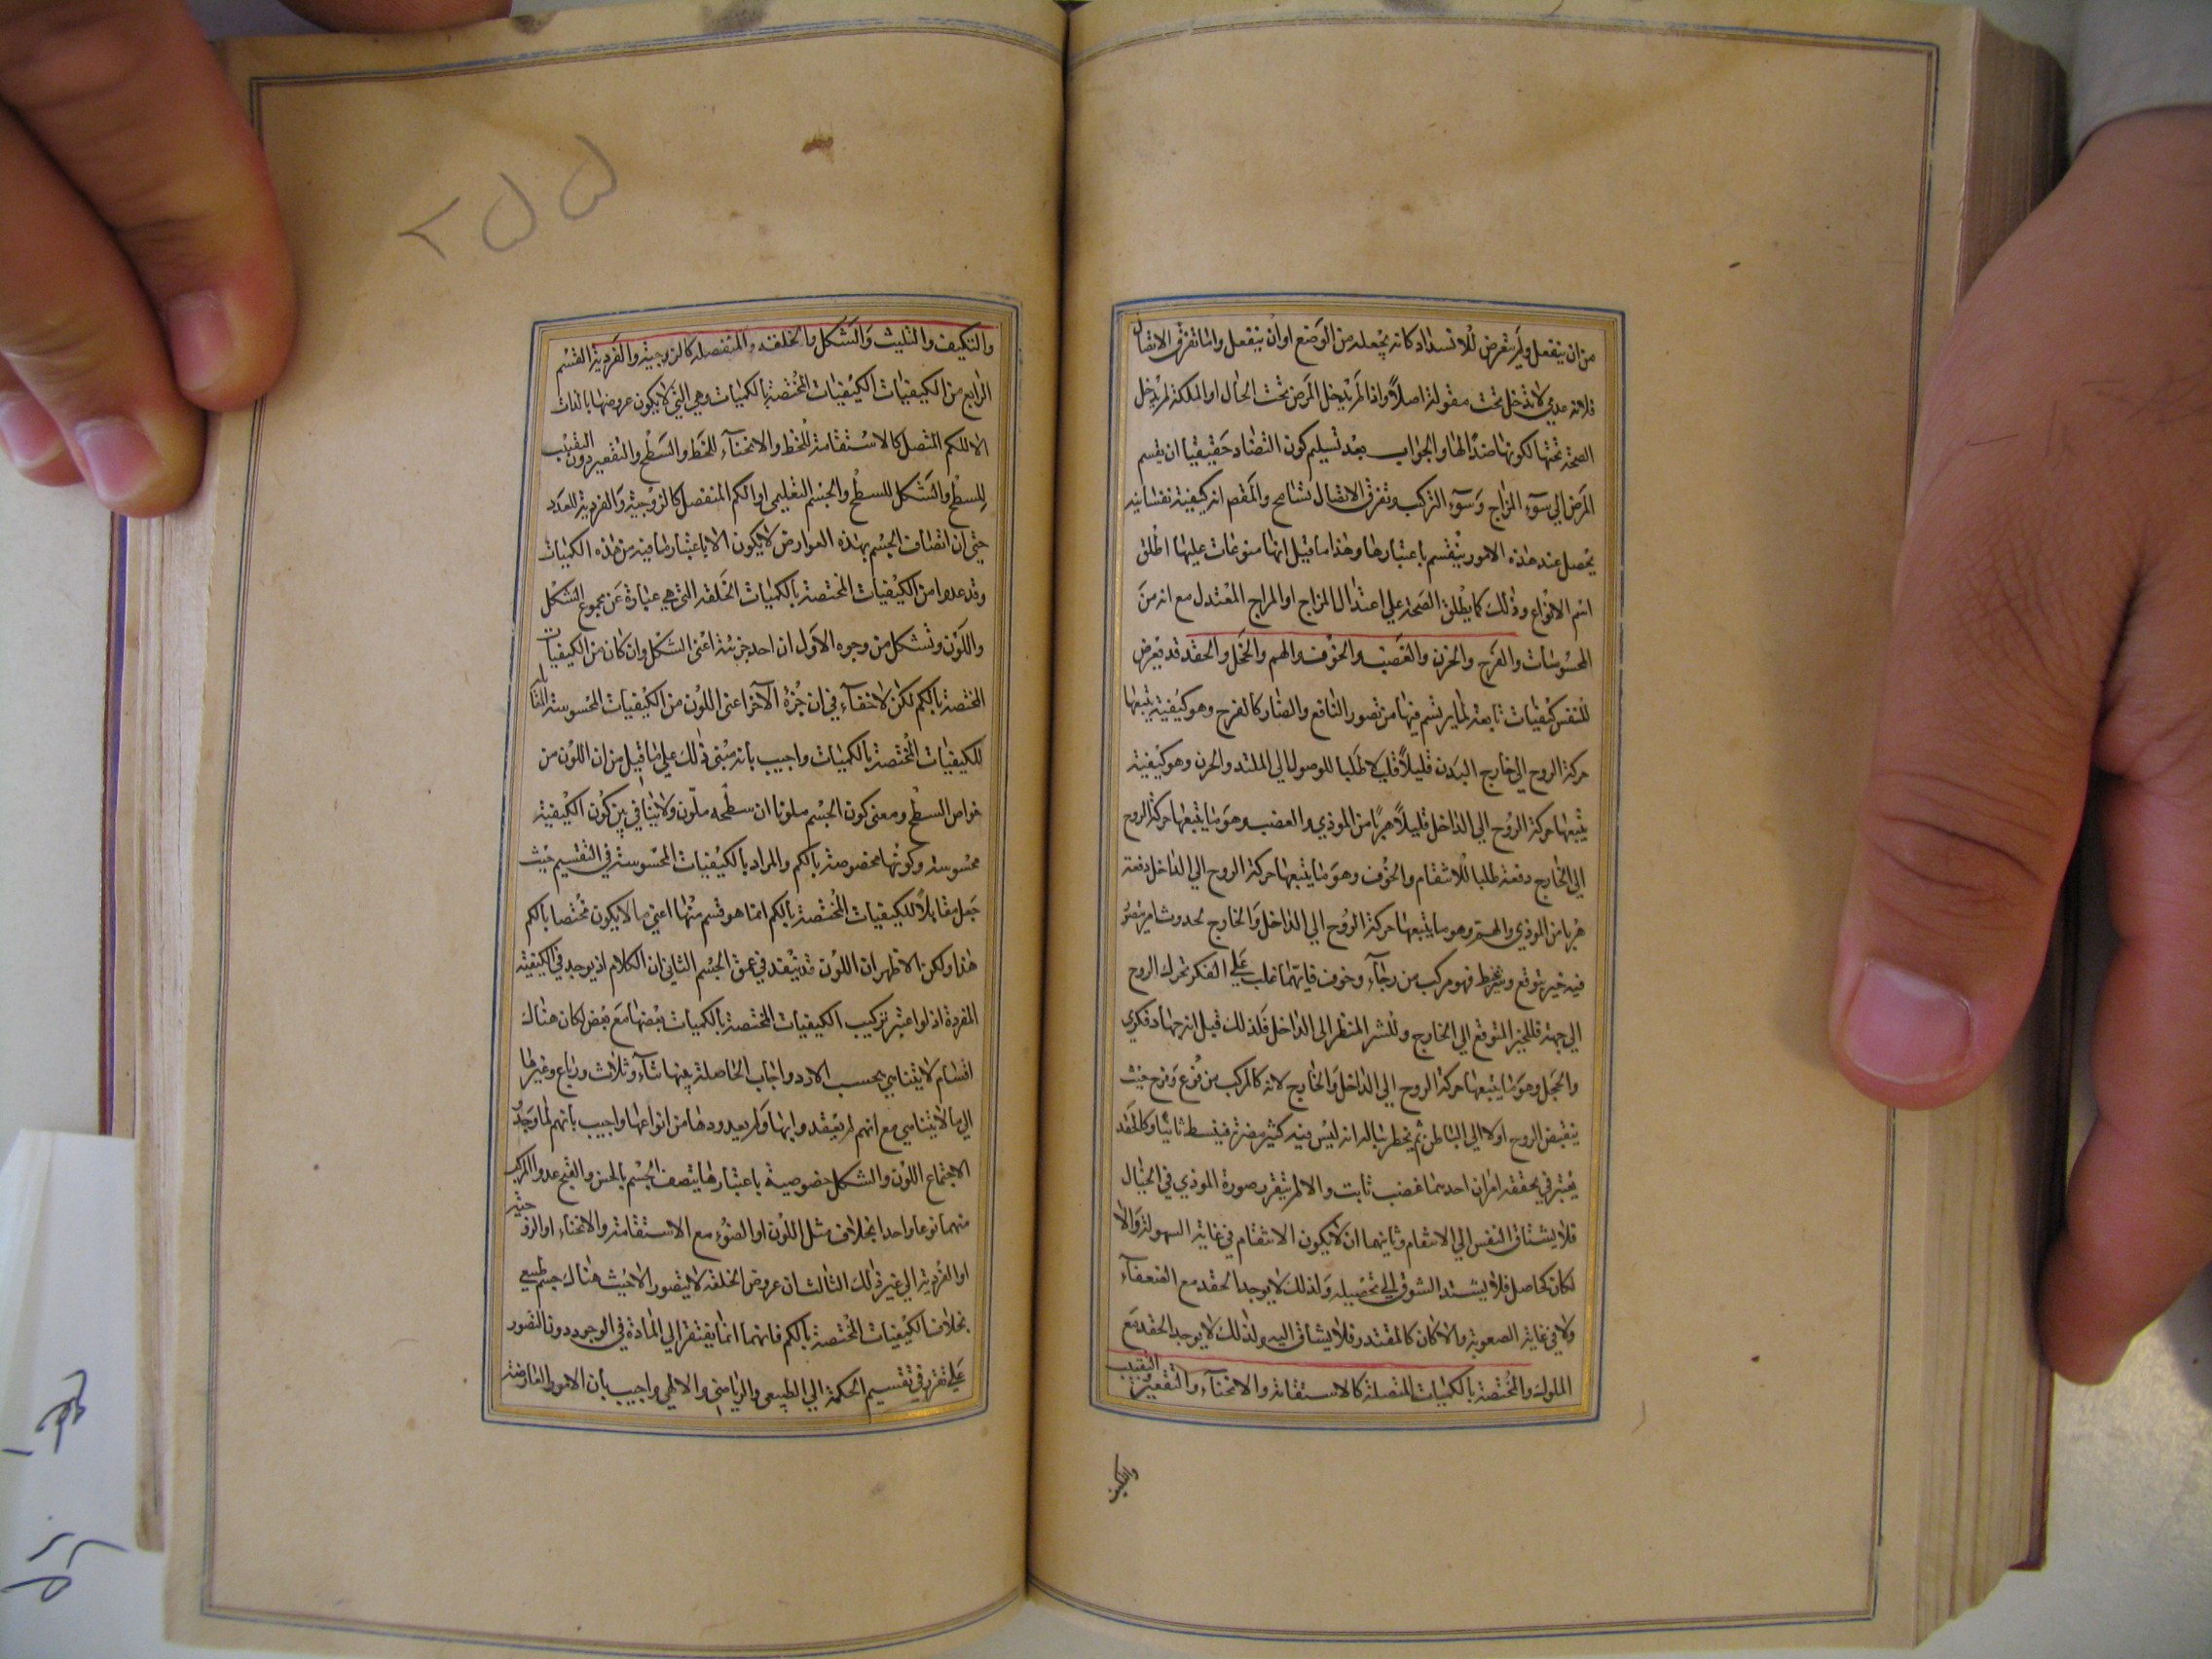 من ان ينفعل ولم يتعرض للانسداد كانه يجعله من الوضع او ان ينفعل واما تفرق الاتصال
فلانه عدمي لا تدخل تحت مقولة اصلا واذا لم يدخل المرض تحت الحال او الملكة لم يدخل
الصحة تحتها لكونها ضدا لها والجواب بعد تسليم كون التضاد حقيقيا ان يقسم
المرض الي سوء المزاج وسوء التركيب وتفرق الاتصال تسامح والمقص انه كيفية نفسانيه
يحصل عند هذه الامور ينقسم باعتبارها وهذا ما قيل انها منوعات عليها اطلق
اسم الانواع وذلك كما يطلق الصحة علي اعتدال المزاج او المزاج المعتدل مع انه من
المحسوسات والفرح والحزن والغضب والخوف والهم والخجل والحقد قد يعرض
للنفس كيفيات تابعة لما يرتسم فيها من تصور النافع والضار كالفرح وهو كيفية يتبعها
حركة الروح الي خارج البدن قليلا قليلا طلبا للوصول الي الملتذ والحزن وهو كيفية
يتبعها حركة الروح الي الداخل قليلا هربا من الموذي والغضب وهو ما يتبعها حركة الروح
الي الخارج دفعة طلبا للانتقام والخوف وهو ما يتبعها حركة الروح الي الداخل دفعة
هربا من الموذي والهم وهو ما يتبعها حركة الروح الي الداخل والخارج لحدوث امر يتصور
فيه خير يتوقع وشر ينتظر فهو مركب من رجاء وخوف فايهما غلب علي الفكر تحرك الروح
الي جهته فللخير المتوقع الي الخارج وللشر المنتظر الي الداخل فلذلك قيل انه جهاد فكري
والخجل وهو ما يتبعها حركة الروح الي الداخل والخارج لانه كالمركب من فزع وفرح حيث
ينقبض الروح اولا الي الباطن ثم يخطر بباله انه ليس فيه كثير مضرة فينبسط ثانيا وكالحقد
يعتبر في تحققه امران احدهما غضب ثابت والا لم يتقرر صورة الموذي في الخيال
فلا يشتاق النفس الي الانتقام وثانيهما ان لا يكون الانتقام في غاية السهولة والا
لكان كالحاصل فلا يشتد الشوق الي تحصيله ولذلك لا يوجد الحقد مع الضعفاء
ولا في غاية الصعوبة والا كان كالمقتدر فلا يشتاق اليه ولذلك لا يوجد الحقد مع
الملوك والمختصة بالكميات المتصلة كالاستقامة والانحناء والتقعير
التقبيب
والتكيف
٢٥٥
والتكيف والتثليث والشكل والخلقه والمنفصله كالزوجية والفردية القسم
الرابع من الكيفيات الكيفيات المختصة بالكميات وهي التي لا يكون عروضها بالذات
الا للكم المتصل كالاستقامة للخط والانحناء للخط والسطح والتقعير دون التقبيب
للسطح والشكل للسطح والجسم التعليمي او الكم المنفصل كالزوجية والفردية للعدد
حتي ان اتصاف الجسم بهذه العوارض لا يكون الا باعتبار ما فيه من هذه الكميات
وقد عدوا من الكيفيات المختصة بالكميات الخلقه التي هي عبارة عن مجموع الشكل
واللون وتشكل من وجوه الاول ان احد جزئية اعني الشكل وان كان من الكيفيات
المختصة بالكم لكن لا خفاء في ان جزءه الآخر اعني اللون من الكيفيات المحسوسة المقابلة
للكيفيات المختصة بالكميات واجيب بانه مبني ذلك علي ما قيل من ان اللون من
خواص السطح ومعني كون الجسم ملونا ان سطحه ملون ولا تنافي بين كون الكيفية
محسوسه وكونها مخصوصة بالكم والمراد بالكيفيات المحسوسة في التقسيم حيث
جعل مقابلا للكيفيات المختصة بالكم انما هو قسم منها اعني ما لا يكون مختصا بالكم
هذا ولكن الاظهر ان اللون قد ينفد في عمق الجسم الثاني ان الكلام اذ يوجد في الكيفية
المفردة اذ لو اعتبر تركيب الكيفيات المختصة بالكميات بعضها مع بعض لكان هناك
اقسام لا يتناهي بحسب الازدواجات الحاصلة بينها ثناء وثلاث ورباع وغيرها
الي ما لا يتناهي مع انهم لم يعتقدوا بها ولم يعدوها من انواعها واجيب بانهم لما وجدوا
الاجتماع اللون والشكل خصوصية باعتبارها يتصف الجسم بالحسن والقبح عدوا المركب
منهما نوعا واحدا بخلاف مثل اللون او الضوء مع الاستقامة والانحناء او الزوجية
او الفردية الي غير ذلك الثالث ان عروض الخلقة لا يتصور الا حيث هناك جسم طبيعي
بخلاف الكيفيات المختصة بالكم فانهما انما يفتقر الي المادة في الوجود دون التصور
علي تقرر في تقسيم الحكمة الي الطبيعي والرياضي والالهي واجيب بان الامور العارضة